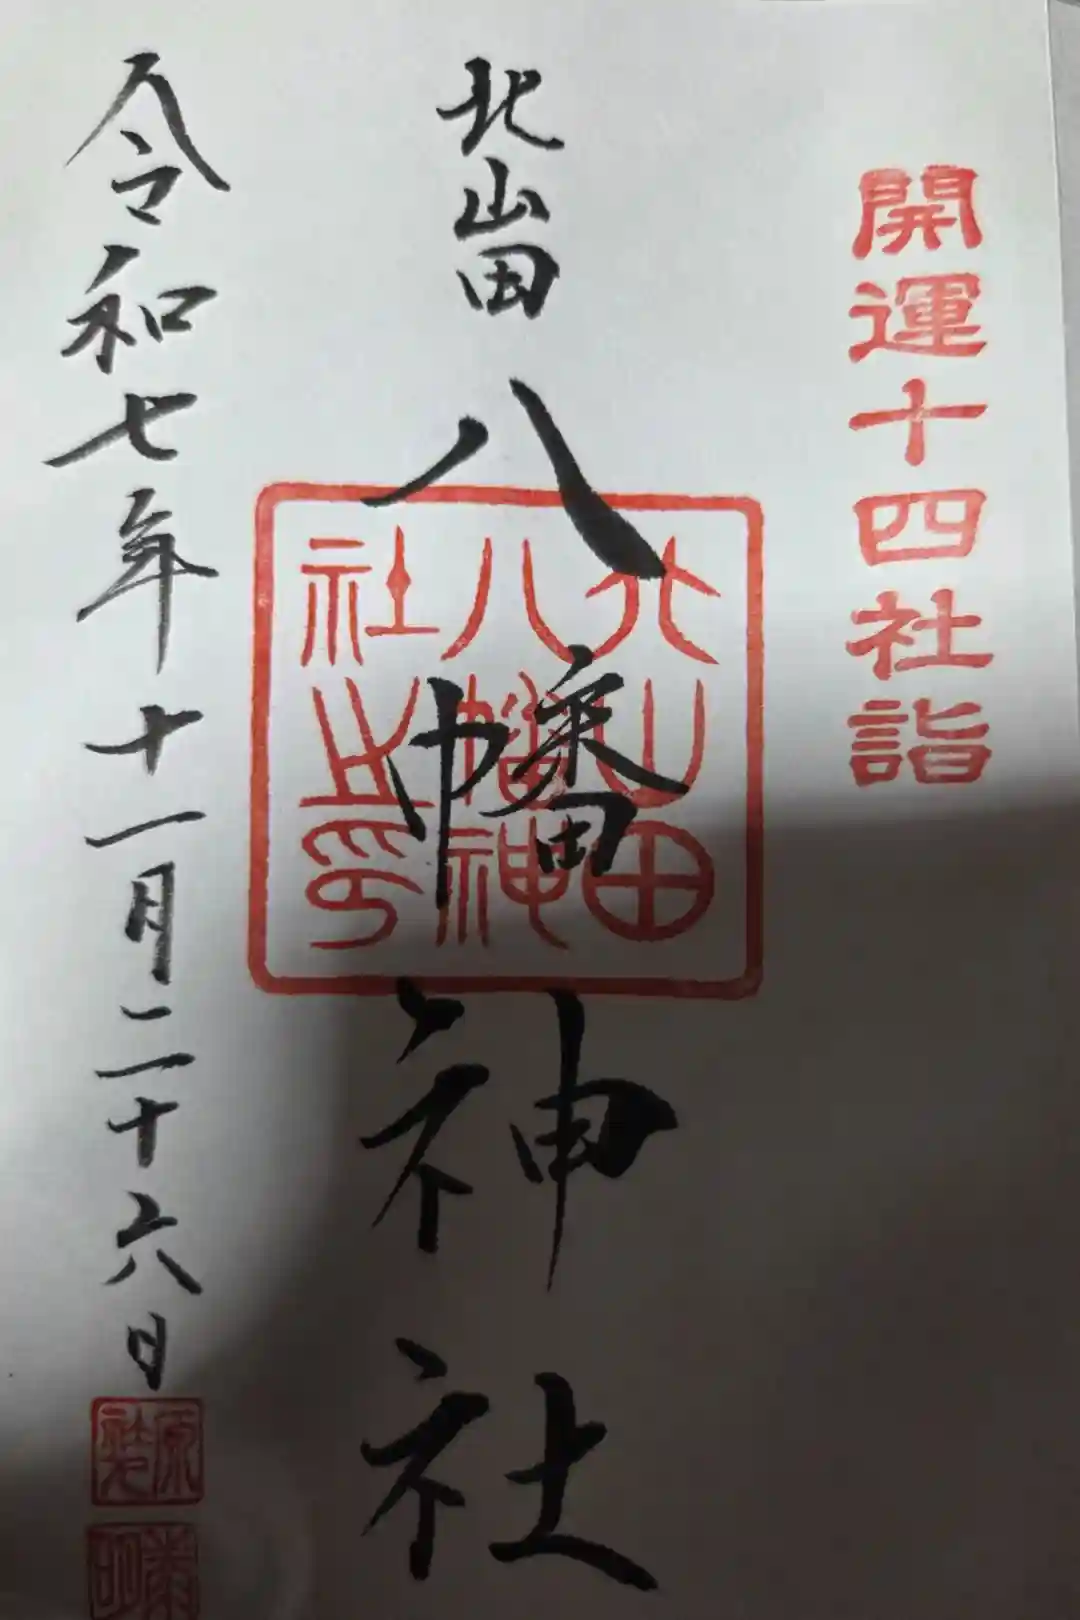 開運十四社詣
北山田八幡神社
北山田
八幡神
社之印
令和七年十一月二十六日